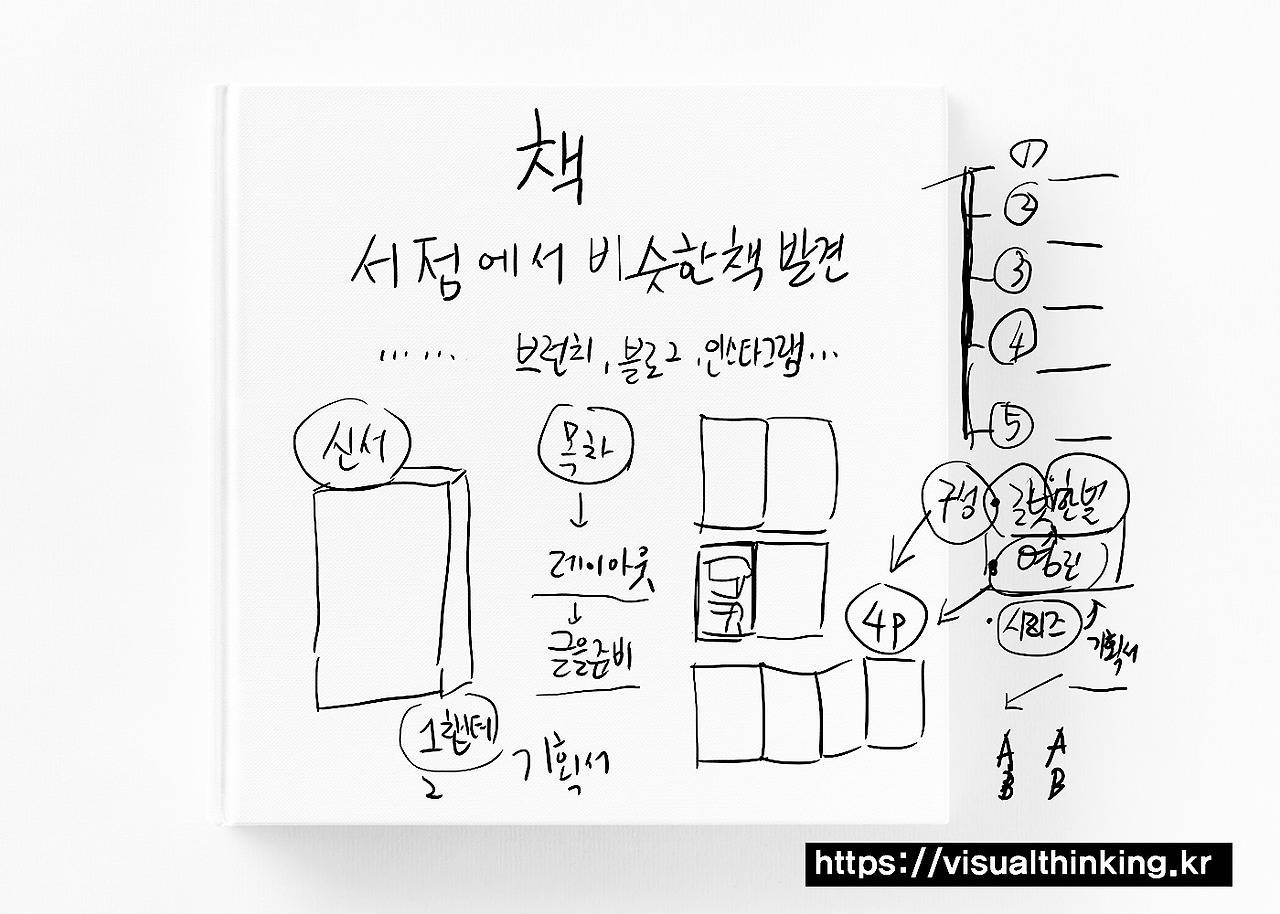 책
서점에서 비슷한책 발견
...... 브런치, 블로그, 인스타그램...
신서
목차
레이아웃
글을준비
1챕터
2
기획서
4P
①
②
③
④
⑤
구성
시리즈
기획서
A A
B B
https://visualthinking.kr